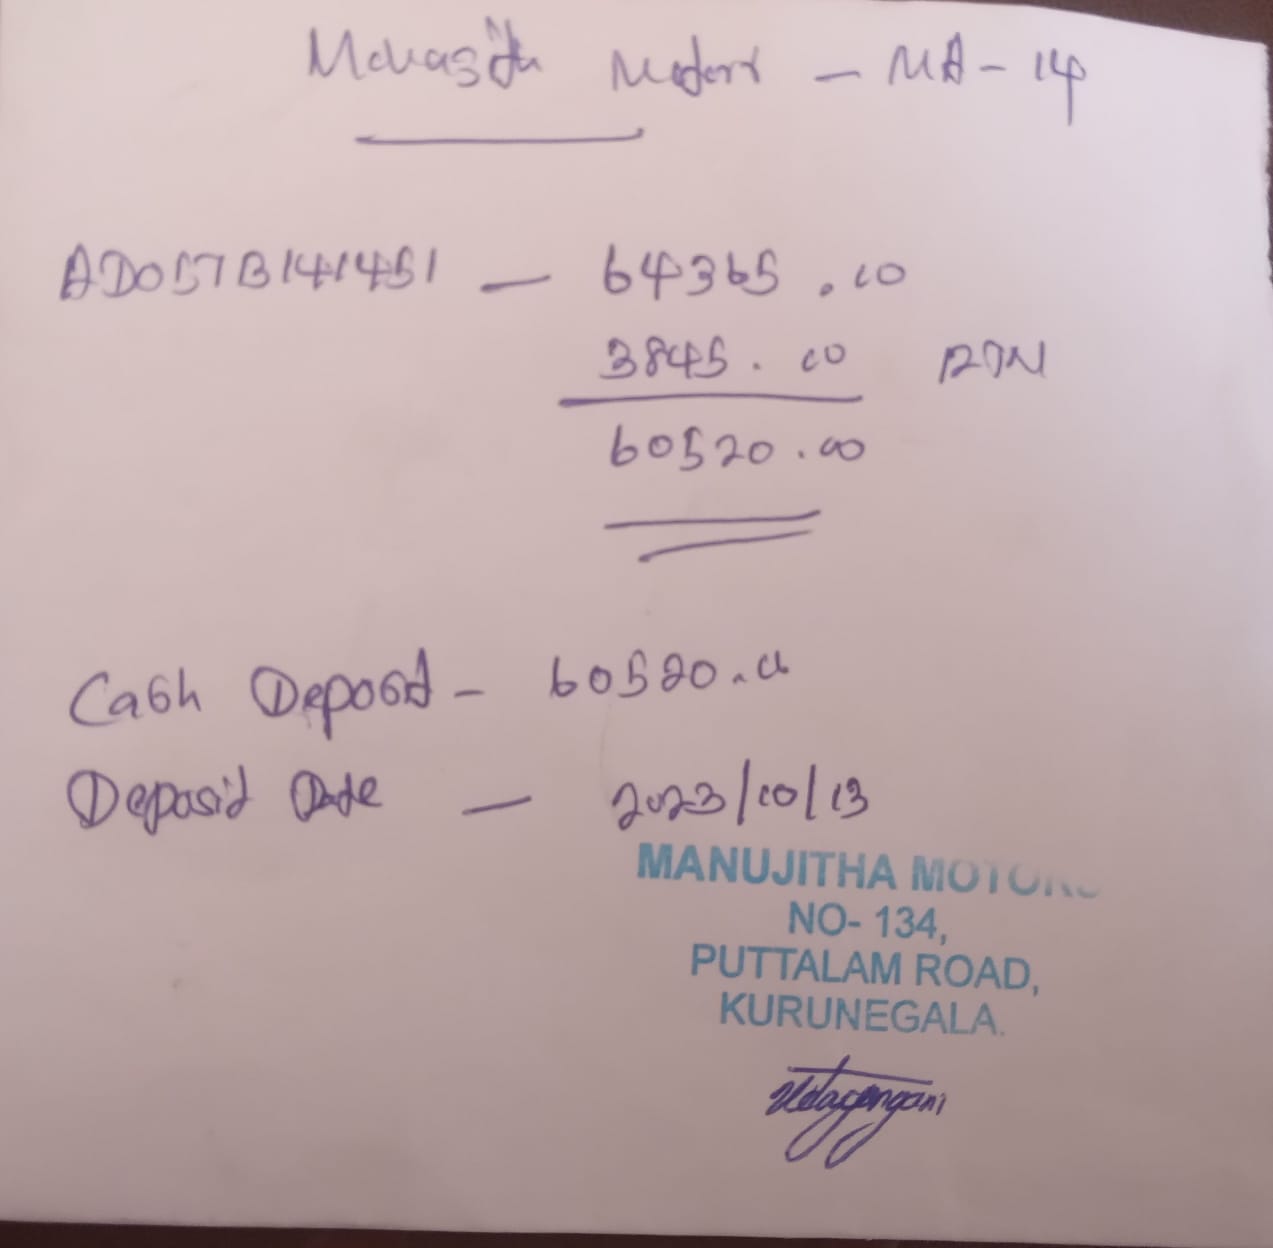 Motors - MA - 14
AD057B141451 - 64365.00
3845.00 RTN
60520.00
Cash Deposit - 60520.00
Deposit Date - 2023/10/13
MANUJITHA MOTORS
NO- 134,
PUTTALAM ROAD,
KURUNEGALA.